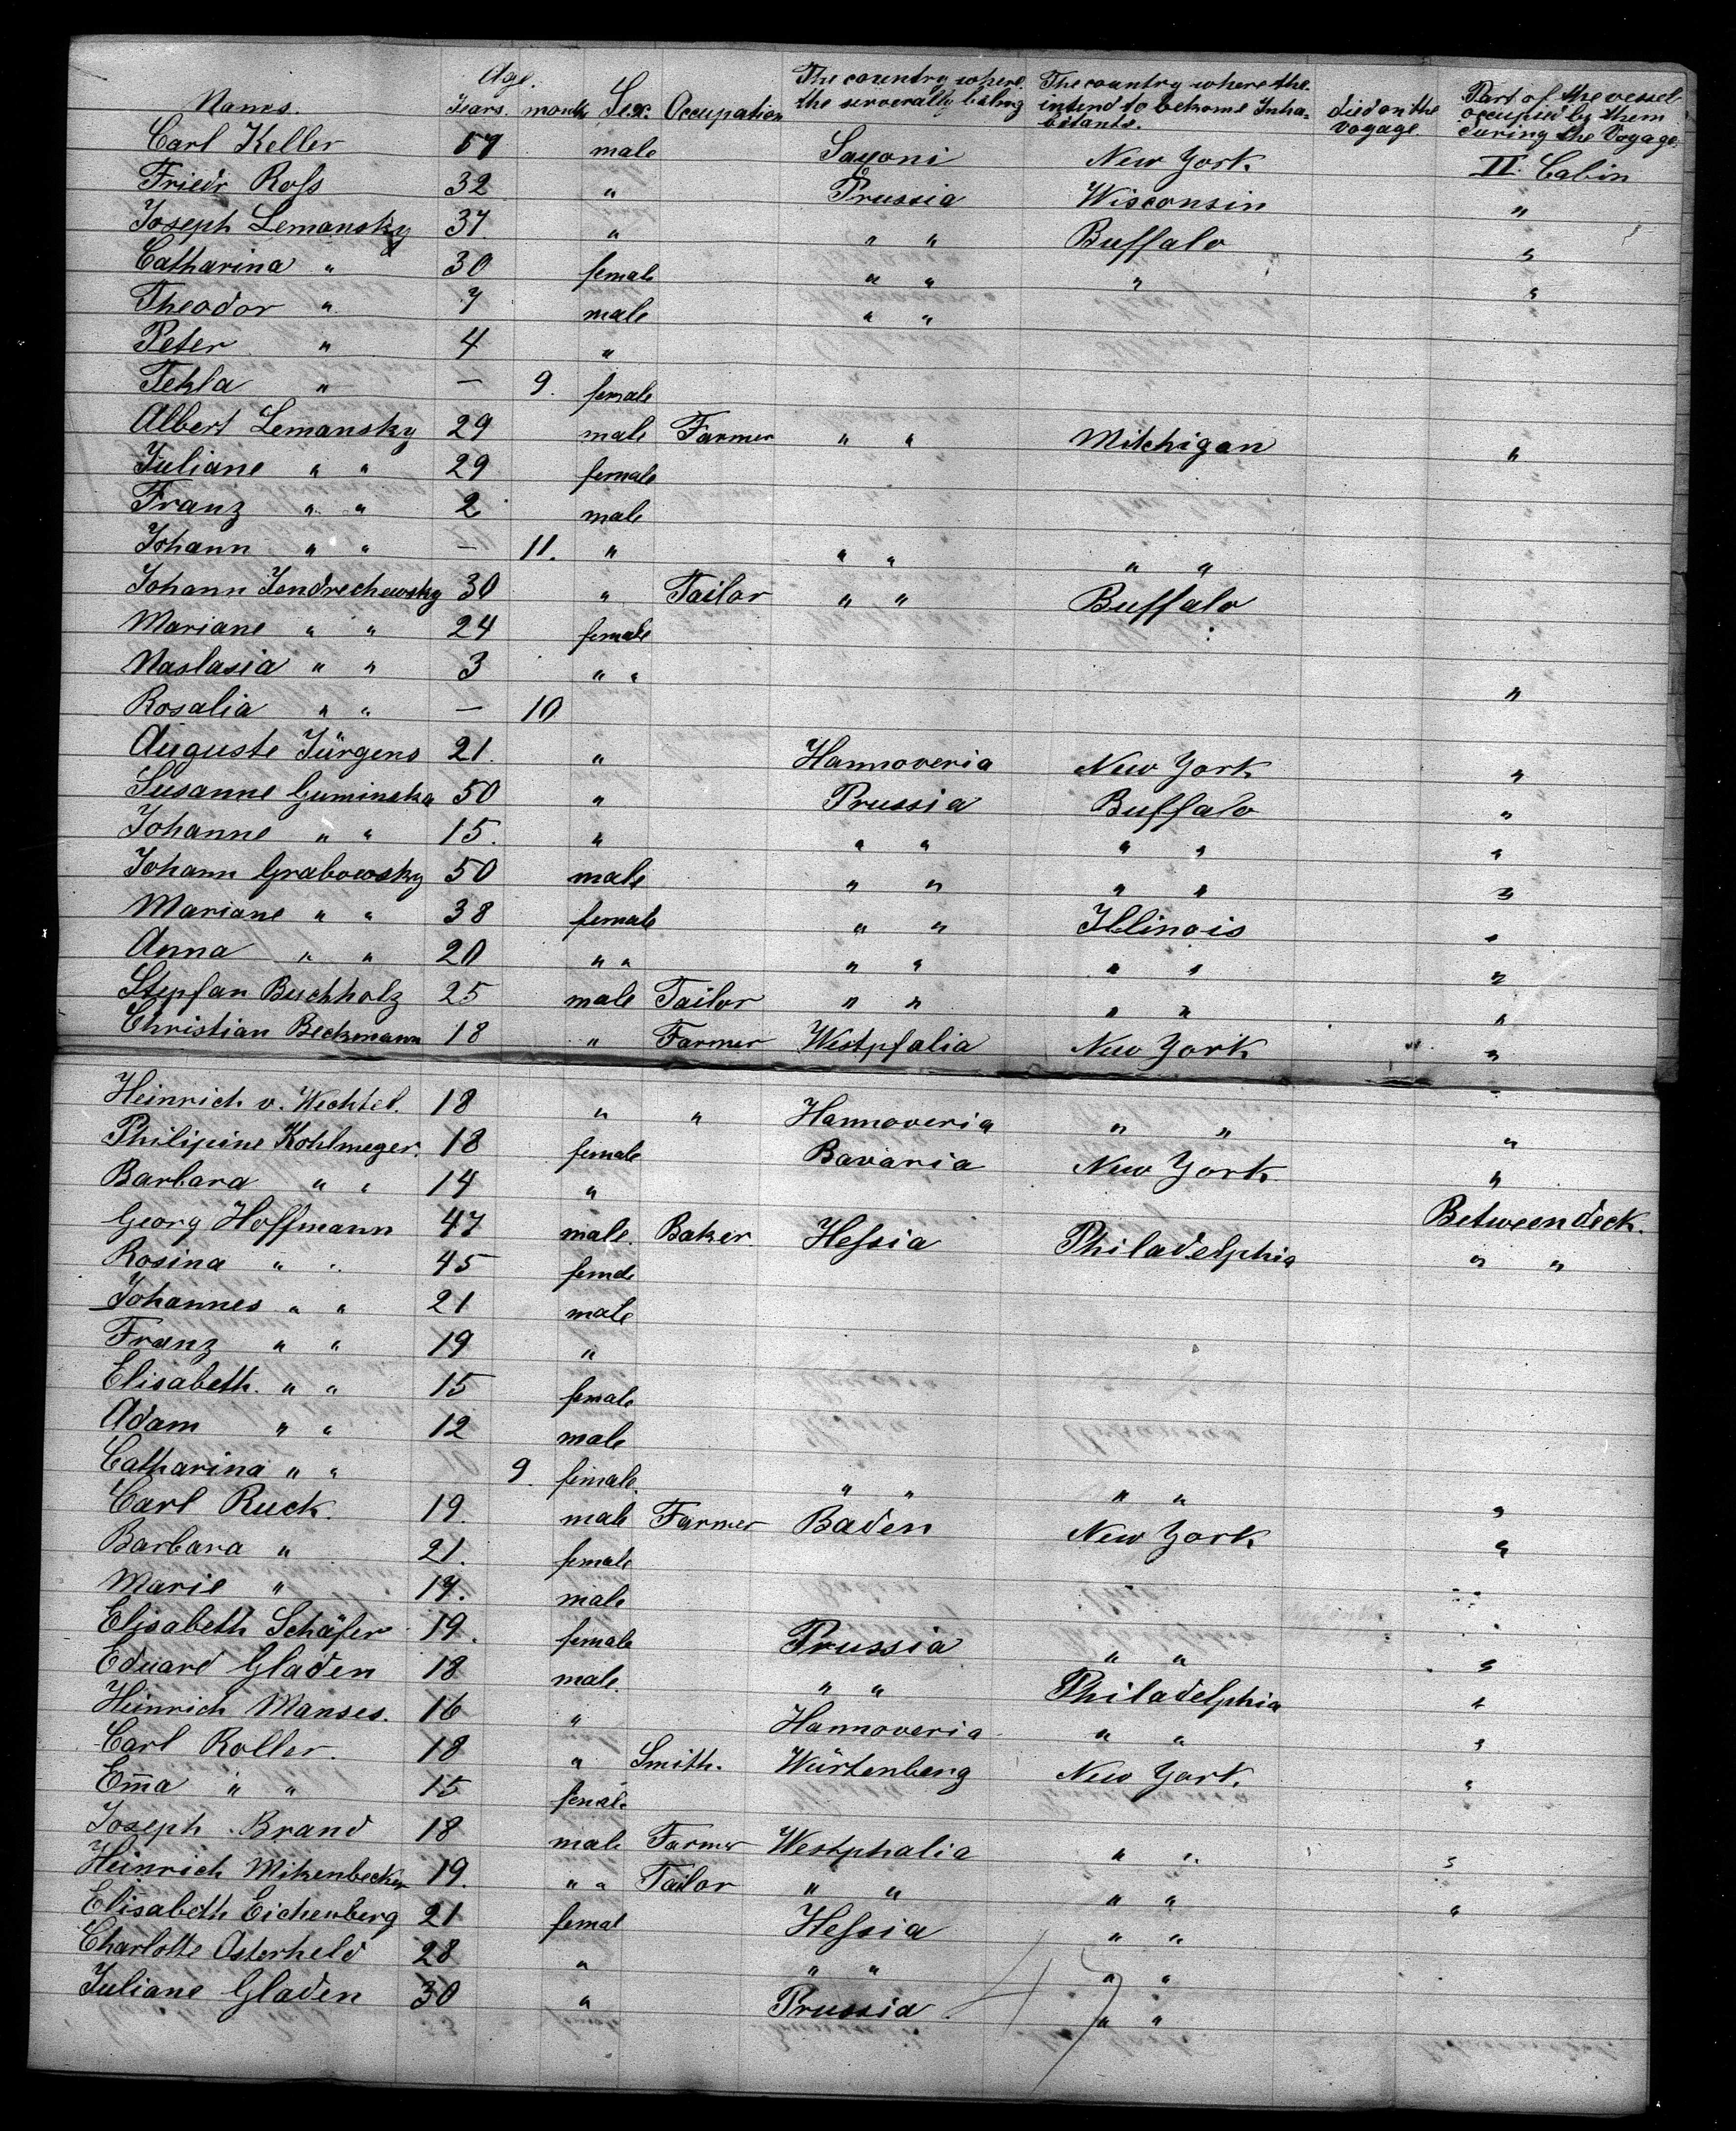 Age.
Names. Years. month Sex. Occupation The country where the severally belong The country where the intend to become Inhabitants. died on the Voyage Part of the vessel occupied by them during the Voyage.
Carl Keller 57 male Saxoni New York II. Cabin
Friedr Roſs 32 " Prussia Wisconsin "
Joseph Lemansky 37 " " " Buffalo "
Catharina " 30 female " " " "
Theodor " 7 male " "
Peter " 4 "
Tekla " — 9. female
Albert Lemansky 29 male Farmer " " Mitchigan "
Juliane " " 29 female
Franz " " 2 male
Johann " " — 11. " " " " "
Johann Jendrechewsky 30 " Tailor " " Buffalo
Mariane " " 24 female
Naslasia " " 3 " " "
Rosalia " " — 10
Auguste Jürgens 21. " Hannoveria New York "
Susanne Guminska 50 " Prussia Buffalo "
Johanne " " 15. " " " " " "
Johann Grabowsky 50 male " " " " "
Mariane " " 38 female " " Illinois "
Anna " " 20 " " " " " " "
Stepfan Buchholz 25 male Tailor " " " " "
Christian Beckmann 18 " Farmer Westpfalia New York "
Heinrich v. Wechtel. 18 " " Hannoveria " " "
Philipine Kohlmeger. 18 female Bavaria New York "
Barbara " " 14 "
Georg Hoffmann 47 male. Baker. Heſsia Philadelphia Between deck.
Rosina " " 45 femde " "
Johannes " " 21 male
Franz " " 19 "
Elisabeth. " " 15 female
Adam " " 12 male
Catharina " " 9. female. " " " " "
Carl Ruck. 19. male Farmer Baden New York "
Barbara " 21. female
Marie " 17. male
Elisabeth Schäfer 19. female Prussia " " "
Eduard Gladen 18 male. " " Philadelphia "
Heinrich Manses. 16 " Hannoveria " " "
Carl Roller. 18 " Smith. Würtenberg New York "
Em̅a " " 15 female
Joseph Brand 18 male Farmer Westphalia " " "
Heinrich Mitzenbecker 19. " " Tailor " " " " "
Elisabeth Eichenberg 21 femal Heſsia " "
Charlotte Osterheld 28 " " " " "
Juliane Gladen 30 " Prussia " "
47